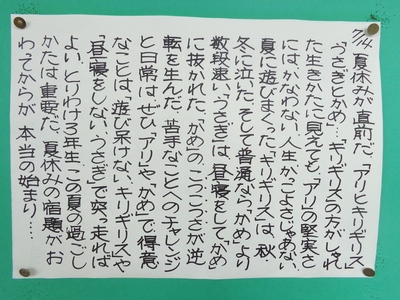 7/14 夏休みが直前だ。「アリとキリギリス」
「うさぎとかめ」…キリギリスの方がしゃれ
た生きかたに見えても、「アリ」の堅実さ
には、かなわない。人生かっこよさじゃあない。
夏に遊びまくった「キリギリス」は、秋
冬に泣いた。そして普通なら「かめ」より
数段速い「うさぎ」は昼寝をして「かめ」
に抜かれた。「かめ」のこつこつさが逆
転を生んだ。苦手なことへのチャレンジ
と日常はぜひ、「アリ」や「かめ」で、得意
なことは、「遊び呆けない、キリギリス」や
「昼寝をしない、うさぎ」で突っ走れば
よい。とりわけ3年生、この夏の過ごし
かたは重要だ。夏休みの宿題がお
わってからが、本当の始まり…。